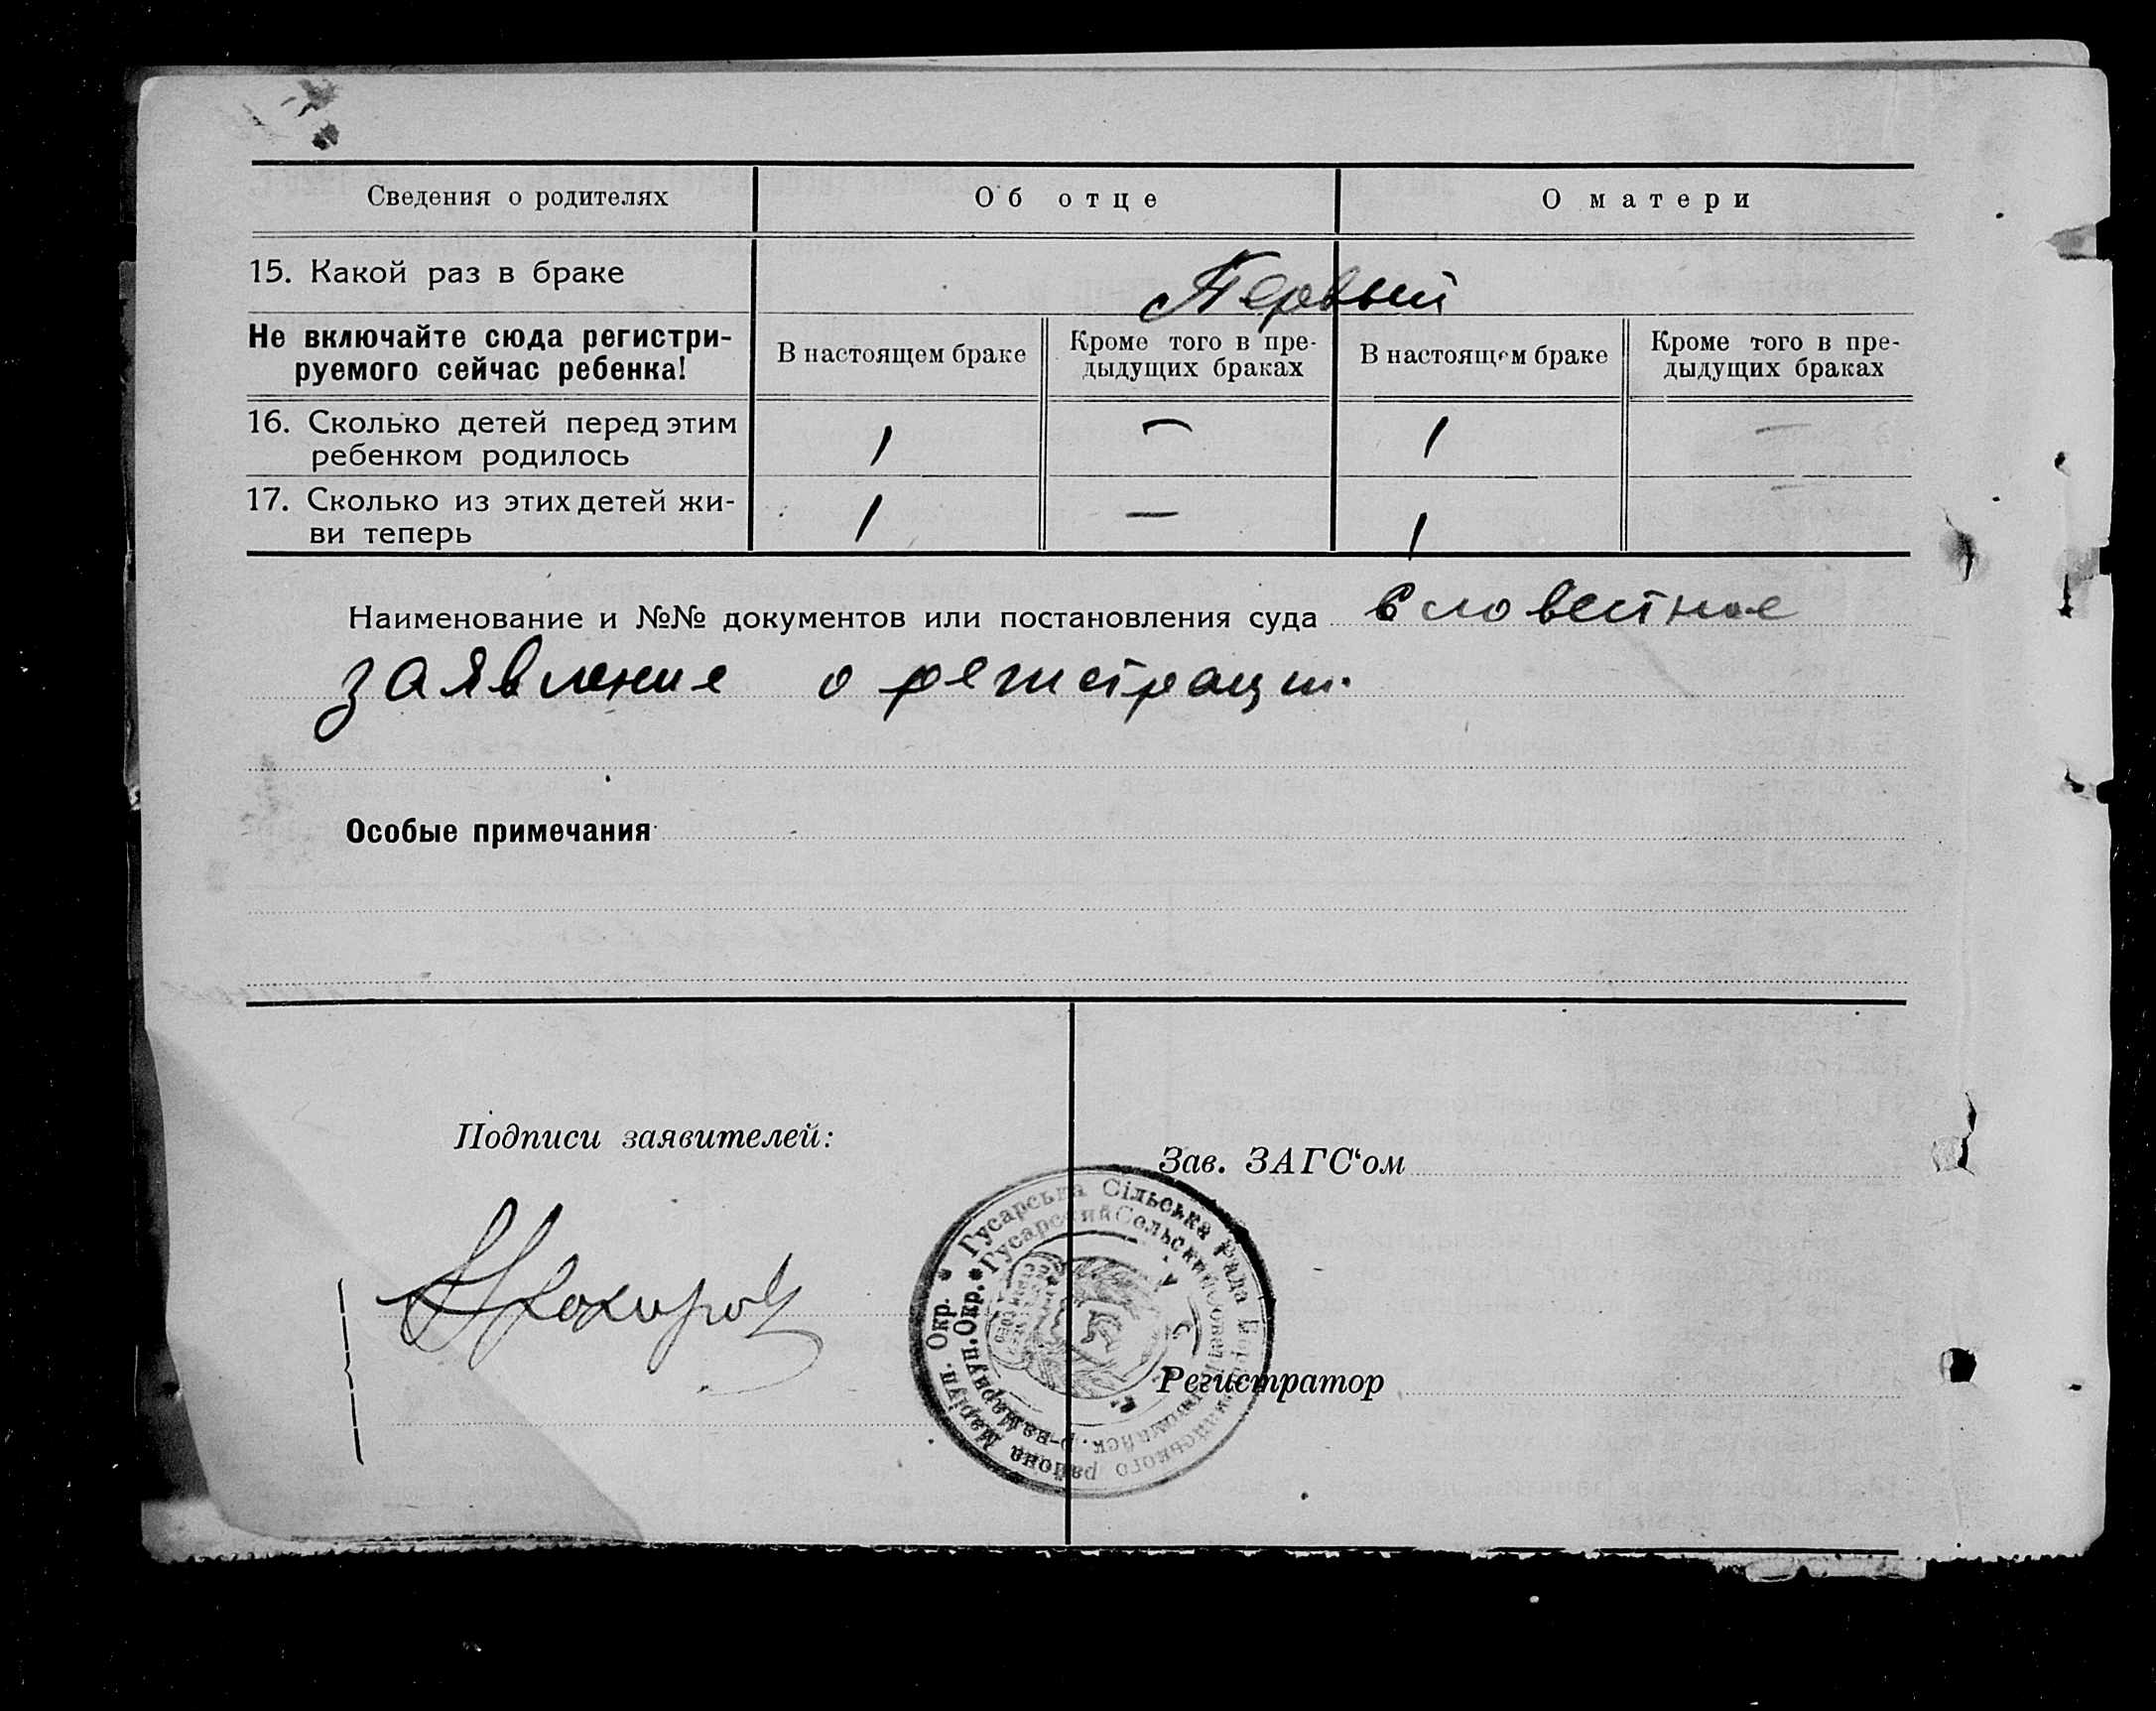 Сведения о родителях
Об отце
О матери
15. Какой раз в браке
Первый
Не включайте сюда регистри-
руемого сейчас ребенка!
В настоящем браке
Кроме того в пре-
дыдущих браках
В настоящем браке
Кроме того в пре-
дыдущих браках
16. Сколько детей перед этим
ребенком родилось
1 — 1 —
17. Сколько из этих детей жи-
ви теперь
1 — 1 —
Наименование и №№ документов или постановления суда словестное
заявление о регистрации.
Особые примечания
Подписи заявителей:
Зав. ЗАГС‘ом
Прохоров
Регистратор
* Гусарська Сільська Рада района Маріуп. Окр.
* Гусарский Сельский р-на Мариуп. Окр.